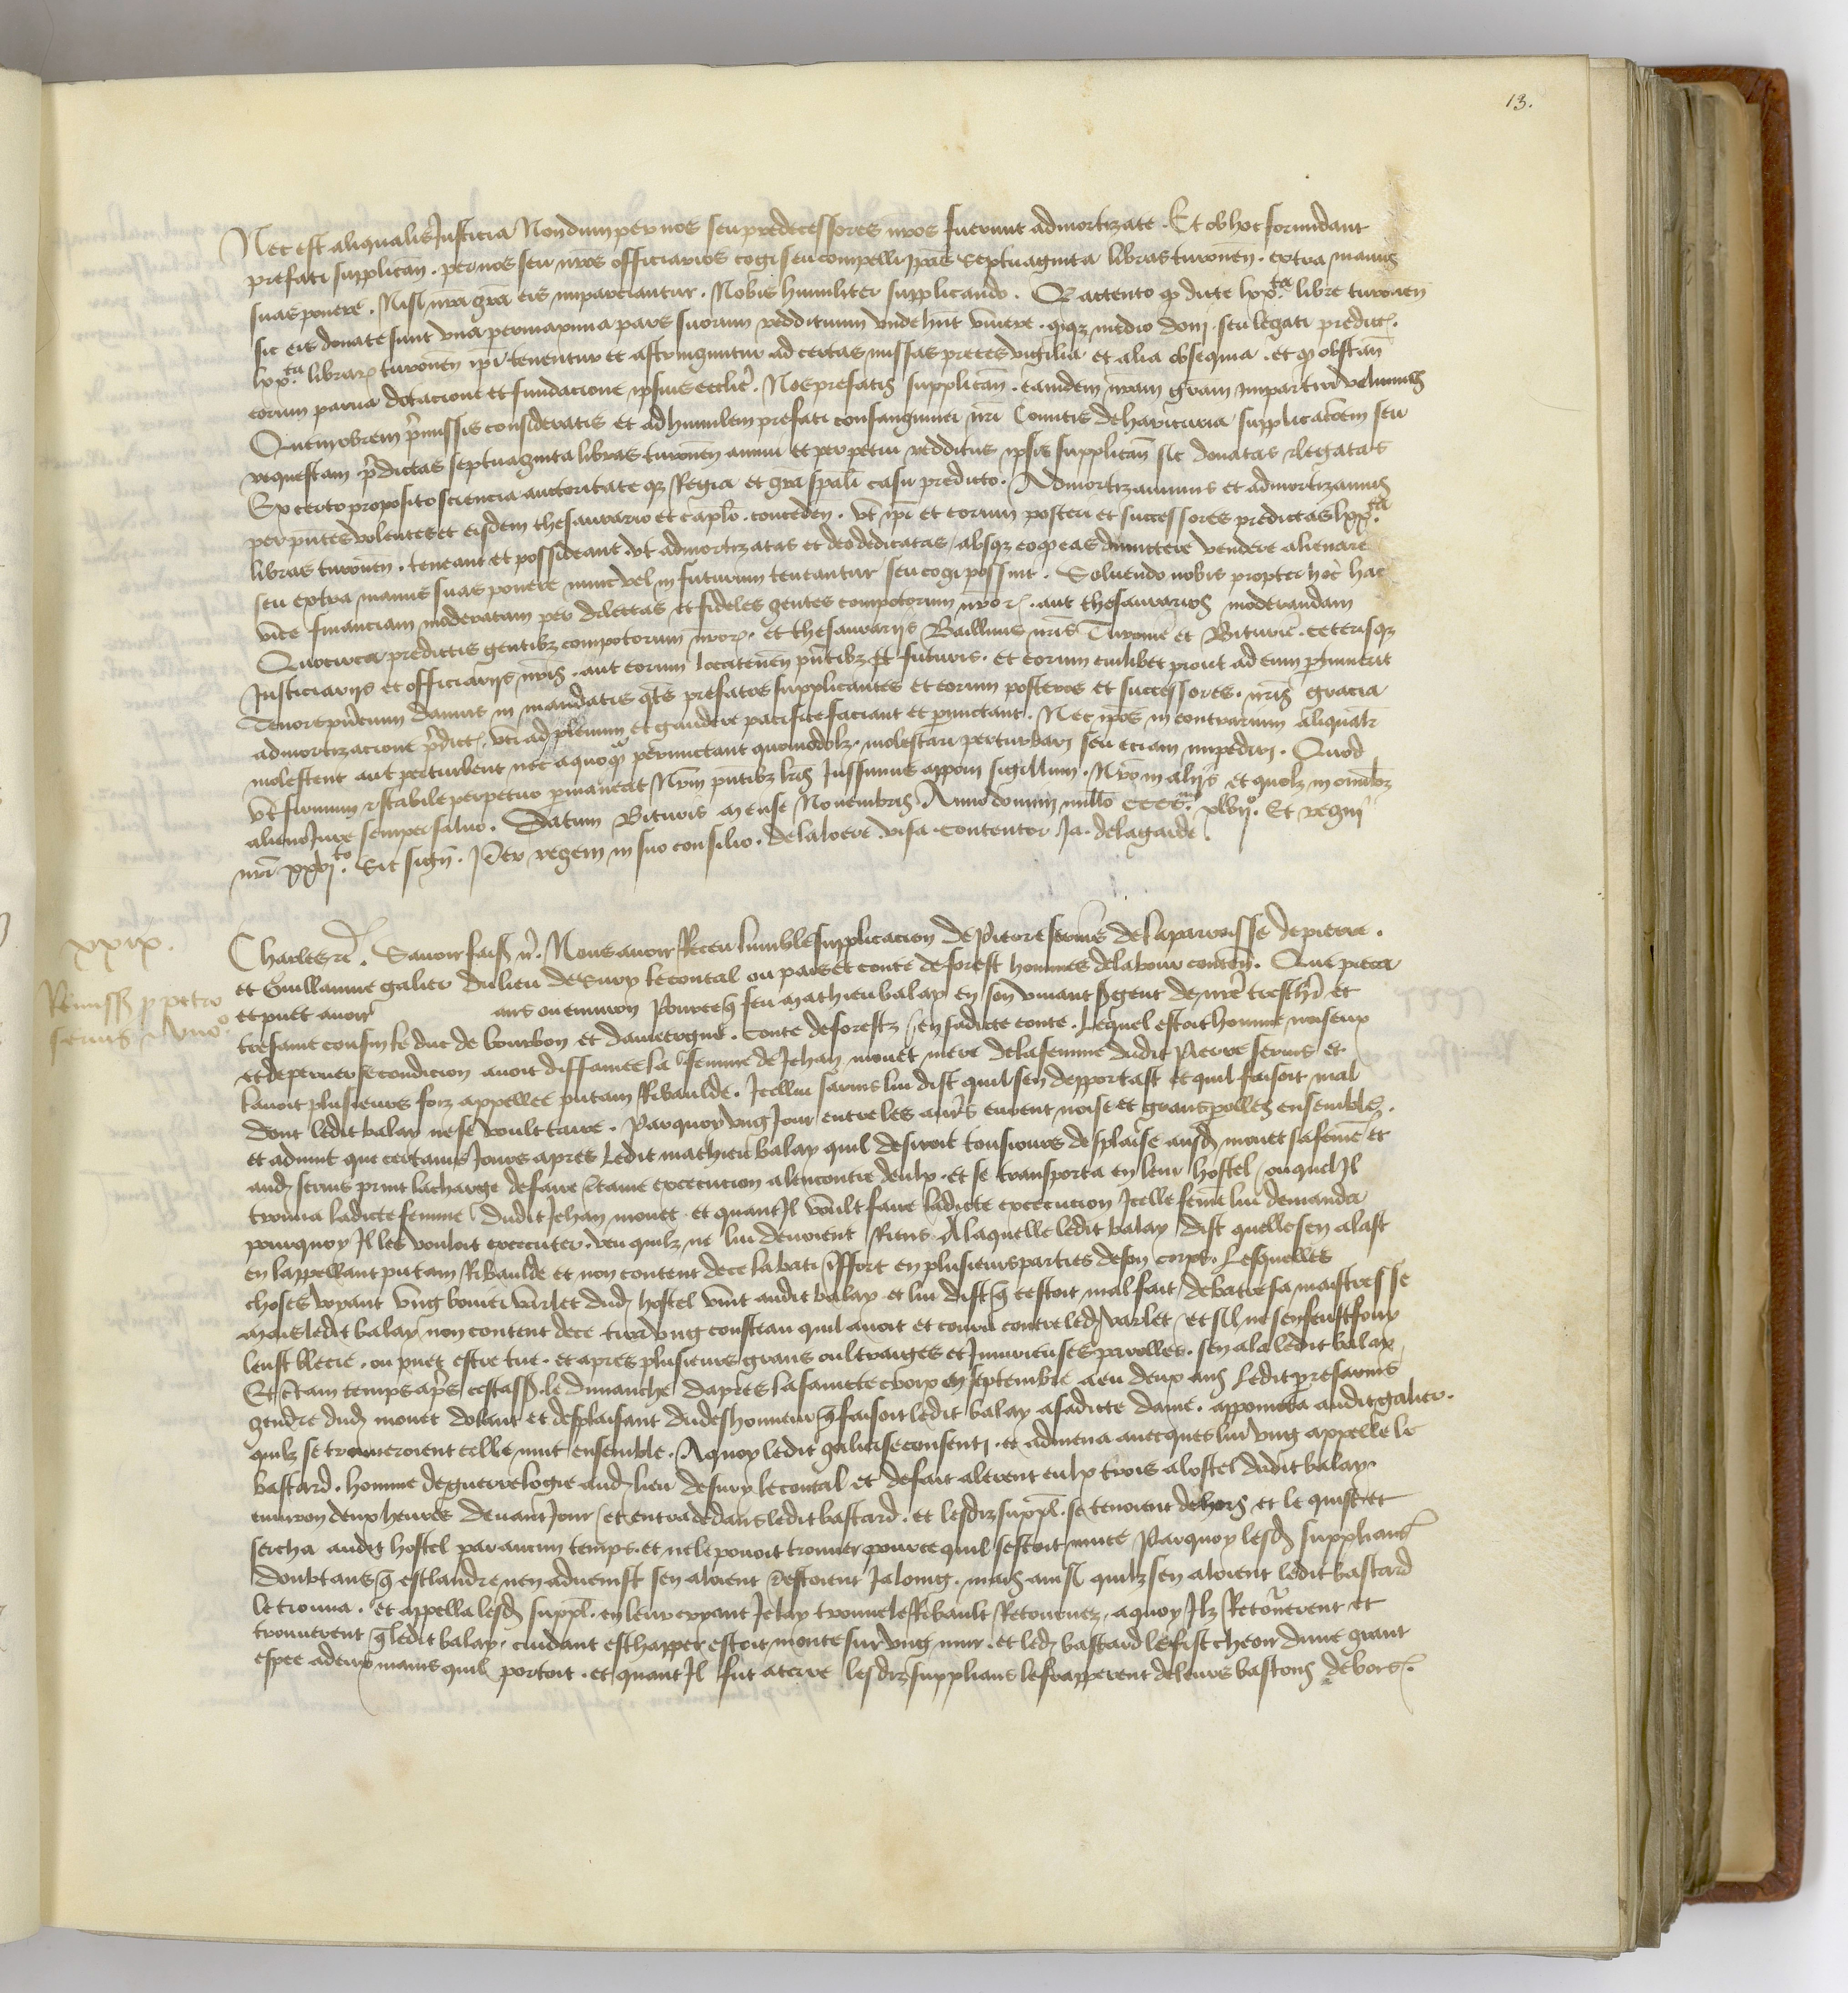 13.
Nec est aliqualis Justicia Nondum per nos seu predecessores nros fuerunt admortizate . Et ob hoc formidant
prefati supplican . per nos seu nros officiarios cogi seu compelli ipas septuaginta libras turonen . extra manus
suas ponere . Nisi nra gra eis imparciantur . Nobis humiliter supplicando . Q attento q dicte lxx.ta libre turonen
sic eis donate sunt una permaxima pars suorum reddituum unde hnt vivere . medio doni . seu legati predict .
lxx.ta librar turonen ipi tenentur et astringuntur ad certas missas preces vigilia et alia obsequia . et q obstan
eorum parva dotacione et fundacione ipsius ecclie . Nos prefatis supplican . eamdem nram gram impartiri velimus
Quamobrem pmissis consideratis et ad humilem prefati consanguinei nri Comitis de haricuria supplicacoem seu
requestam pdictas septuaginta libras turonen annui et perpetui redditus ipsis supplican sic donatas & legatas
Ex certo proposito sciencia auctoritate q Regia et gra spali casu predicto . Admortizavimus et admortizamus
per pntes volentes et eisdem thesaurario et caplo . conceden . ut ipi et eorum posteri et successores predictas lxx.ta
libras turonen . teneant et possideant ut admortizatas et deo dedicatas / absq eo q eas dimittere vendere alienare
seu extra manus suas ponere nunc vel in futurum teneantur seu cogi possint . Solvendo nobis propter hoc hac
vice financiam moderatam per dilectas et fideles gentes compotorum nror . aut thesaurarios moderandam
Quocirca predictis gentibz compotorum nror . et thesaurarijs Baillivis nris Turonie et Biturie . ceterisq
Justiciarijs et officiarijs nris . aut eorum locateneñ pntibz et futuris . et eorum cuilibet prout ad eum ptinuerit
Tenore pncium damus in mandatis qts prefatos supplicantes et eorum posteros et successores . nris gracia
admortizacione pdict . uti ad plenum et gaudere pacifice faciant et pmictant . Nec ipos in contrarium aliqualr
molestent aut perturbent nec a quoq permictant quomodolz . molestari perturbari seu eciam impediri . Quod
ut firmum & stabile perpetuo pmaneat Nrm pntibz lris Jussimus apponi sigillum . Nro in alijs et quolz in omibz
alieno Jure semper salvo . Datum Bituris mense Novembris Anno domini millo cccc.mo xlvij.o Et regni
nri xxvj.to Sic sign . Per regem in suo consilio . delaloere visa . Contentor Ja . delagarde .
xxix.
Remiss p petro
servis & uno
Charles etc . Savoir fais &c . Nous avoir Receu lumble supplicacion de pierre servis de la parroisse de pierre .
et Guillaume galier du lieu de Sury le contal ou pais et conte de forest hommes de labour conten . Que pieca
et puet avoir ans ou environ Pource q feu mathieu balay en son vivant sgent de nre treschr et
tresame cousin le duc de bourbon et dauvergne . Conte de forestz / en sadicte conte . Lequel estoit homme noiseux
et de perverse condicion avoit diffamee la femme de Jehan monet mere de la femme dudit Pierre servis et
lavoit plusieurs foiz appellee putain Ribaulde . Icellui servis lui dist quil sen depportast et quil faisoit mal
dont ledit balay ne se voult taire . Parquoy ung Jour entre les autrs eurent noise et grans polles ensemble .
et advint que certains Jours apres Ledit mathieu balay quil desiroit tousjours desplaise ausd monet sa feme et
aud servis print la charge de faire ctaine execucion a lencontre deulx . et se transporta en leur hostel / ouquel Il
trouva ladicte femme dudit Jehan monet . et quant Il voult faire ladicte execucion Icelle feme lui demanda
pourquoy Il les vouloit executer . veu quilz ne lui devoient Riens A laquelle ledit balay dist quelle sen alast
en lappellant putain Ribaulde et non content de ce la bati si fort en plusieurs parties de son corps . Lesquelles
choses voyant ung bouvier varlet dud hostel vint audit balay . et lui dist q cestoit mal fait de batre sa maistresse
mais ledit balay non content de ce tira ung cousteau quil avoit et couru contre led varlet et sil ne sen feust fouy
leust blecie . ou puet estre tue . et apres plusieurs grans oultraiges et Injurieuses parolles . sen ala ledit balay
Et ctain temps aps cestass . le dimanche dapres la saincte croix en septembre a eu deux ans Ledit pre servis
gendre dud monet dolant et desplaisant du deshonneur q faisoit ledit balay a sadicte dame . appointa audit galier .
quilz se trouveroient celle nuit ensemble . A quoy ledit galier se consenti . et admena avecques lui ung appelle le
bastard . homme de guerre logie aud lieu de sury le contal et de fait alerent eulx trois a lostel dudit balay
environ deux heures devant Jour / et entra dedans ledit bastard . et lesdiz suppl . se tenoient dehors et le quist et
sercha audit hostel par aucun temps . et ne le povoit trouver pource quil sestoit mucé Parquoy lesd suppliant
doubtans q esclandre nen advenist sen aloient & estoient Ja loing . mais ainsi quilz sen aloient ledit bastard
le trouva . et appella lesd suppl . en leur cryant Je lay trouve le Ribault Retournez . a quoy Ilz Retournerent et
trouverent q ledit balay . cuidant eschapper estoit monte sur ung mur . et led bastard le fist cheoir dune grant
espee a deux mains quil portoit . et quant Il fut a terre lesdiz supplians le frapperent de leurs bastons de bois .